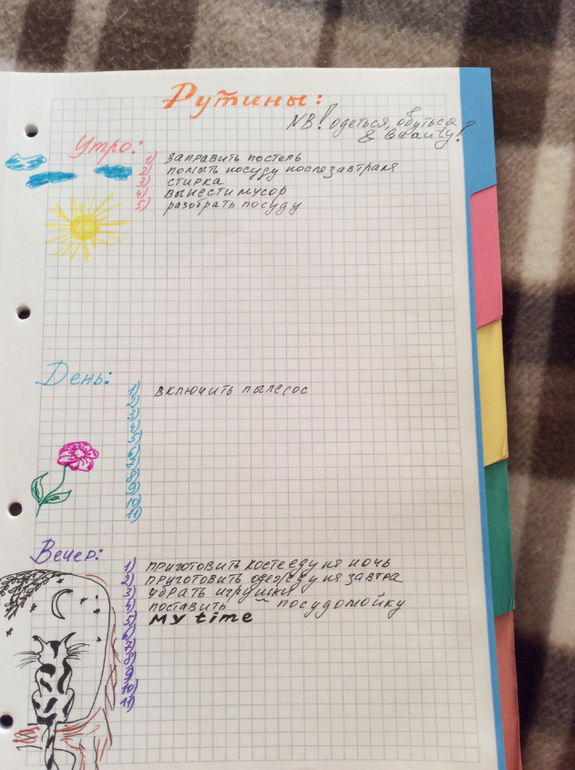 Рутины:
NB! одеться, обуться
& beauty!
Утро:
1) заправить постель
2) помыть посуду после завтрака
3) стирка
4) вынести мусор
5) разобрать посуду
День:
1) включить пылесос
2)
3)
4)
5)
6)
7)
8)
9)
10)
11)
Вечер:
1) приготовить косте еду на ночь
2) приготовить одежду на завтра
3) убрать игрушки
4) поставить посудомойку
5) My time
6)
7)
8)
9)
10)
11)